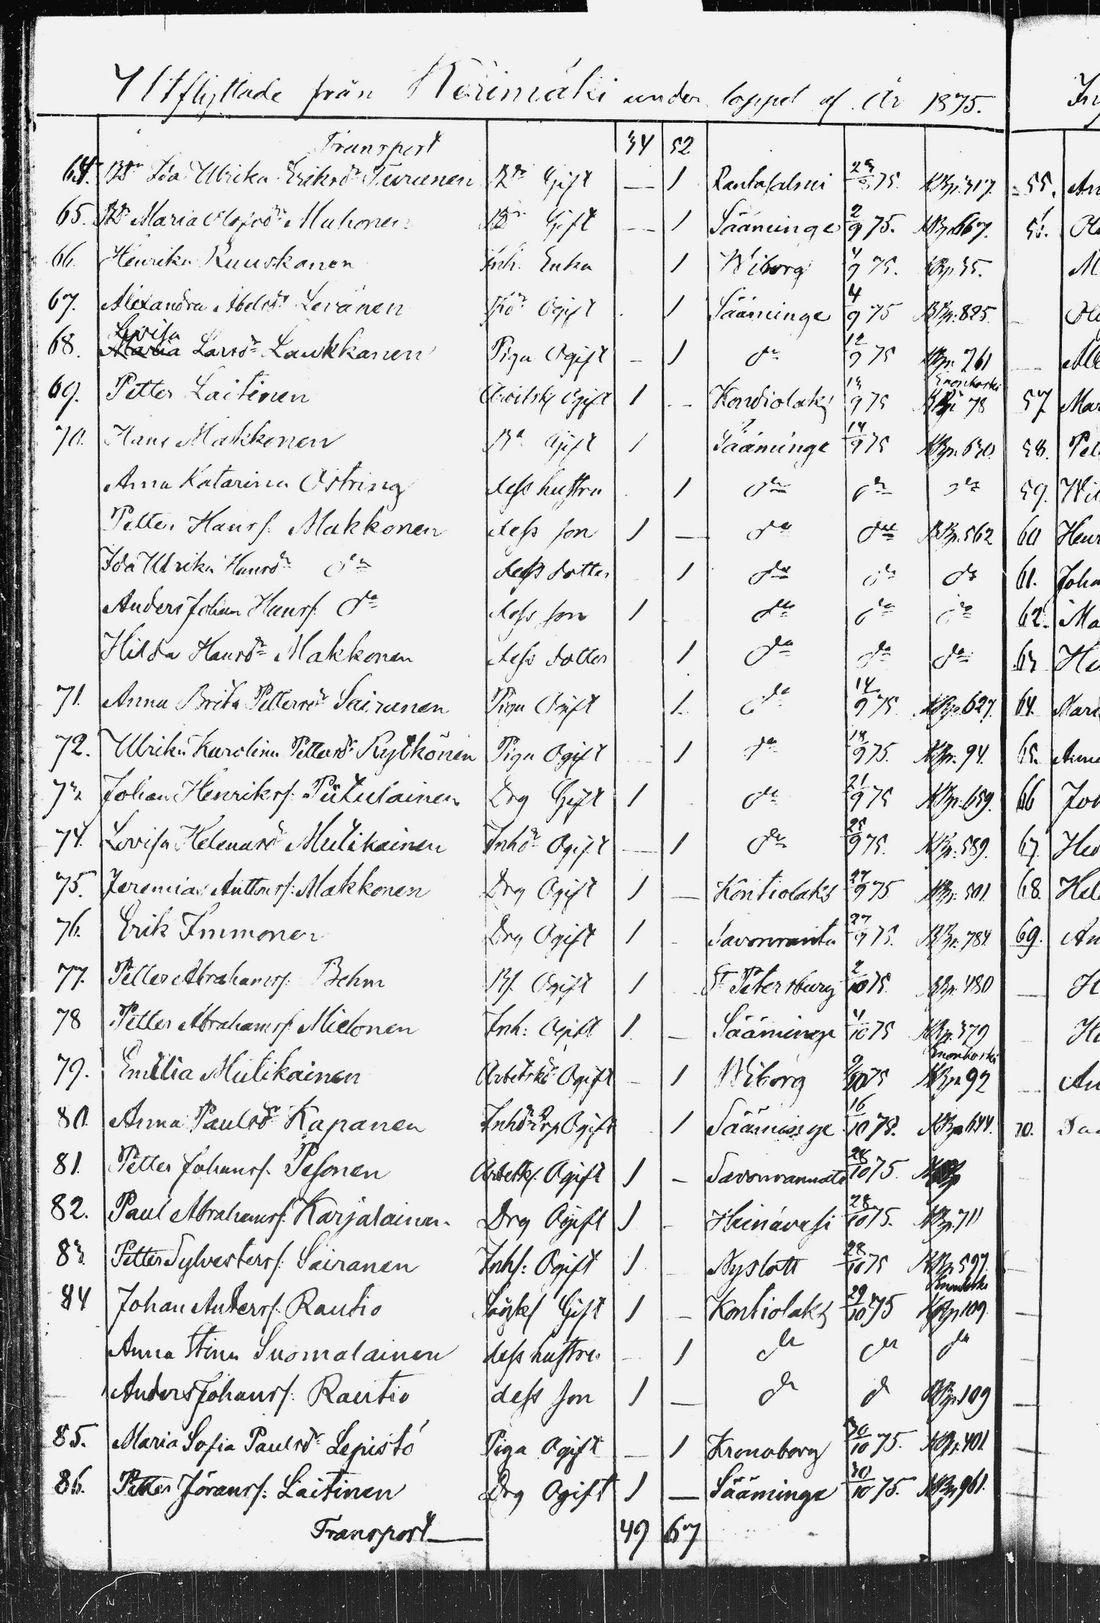 Utflyttade från Kerimäki under loppet af År 1875.
Transport 34 52
64. Ida Ulrika Eriksdr Turunen Gift — 1 Rantasalmi 75. KBp. 317.
65. Maria Olofsdr Muhonen Gift — 1 Sääminge 2/9 75. KBp. 667.
66. Henrika Ruuskanen Inh. Enka 1 Wiborg 4/9 75. KBp. 35.
67. Alexandra Abelsdr Levänen Ogift 1 Sääminge 4/9 75 KBp. 825.
68. Lovisa Larsdr Laukkanen Piga Ogift — 1 do 12/9 75 KBp. 261
69. Petter Laitinen Ogift 1 — Kontiolaks 13/9 75 Enonkoski KBp. 78
70. Hans Makkonen Gift 1 Sääminge 14/9 75 KBp. 630.
Anna Katarina Östring dess hustru 1 do do do
Petter Hanss. Makkonen dess son 1 — do do KBp. 562
Ida Ulrika Hansdr do dess dotter 1 do do do
Anders Johan Hanss. do dess son 1 do do do
Hilda Hansdr Makkonen dess dotter 1 do do do
71. Anna Brita Pettersdr Sairanen Piga Ogift 1 do 14/9 75 KBp. 627.
72. Ulrika Karolina Pettersdr Rytkönen Piga Ogift — 1 do 18/9 75. KBp. 94.
73 Johan Henrikss. Putulainen Drg Gift 1 do 21/9 75 KBp. 659.
74. Lovisa Helena Mulikainen Inhdr Ogift — 1 do 25/9 75. KBp. 589.
75. Jeremias Anttons. Makkonen Drg Ogift 1 — Kontiolaks 27/9 75 KBp. 501
76. Erik Immonen Drg Ogift 1 — Savonranta 27/9 75. KBp. 784
77. Petter Abrahamss. Behm Ogift 1 St Petersburg 2/10 75. KBp. 480
78 Petter Abrahamss. Mielonen Inh: Ogift 1 — Sääminge 4/10 75 KBp. 379
79. Emilia Mulikainen Arbetskdr Ogift — 1 Wiborg 9/10 75 Enonkoski KBp. 92
80. Anna Paulsdr Kapanen Ogift 1 Sääminge 16/10 75. KBp. 644.
81. Petter Johanss. Pesonen Arbetsk. Ogift 1 — Savonrannata 28/10 75.
82. Paul Abrahamss. Karjalainen Drg Ogift 1 — Heinävesi 28/10 75. KBp. 711
83. Petter Sylvesterss. Sairanen Inhs: Ogift 1 Nyslott 28/10 75 KBp. 597.
84 Johan Anderss. Rautio Gift 1 — Kontiolaks 29/10 75 Enonkoski KBp. 109
Anna Stina Suomalainen dess hustru — 1 do do do
Anders Johanss. Rautio dess son 1 — do do KBp. 109
85. Maria Sofia Paulsdr Lepistö Piga Ogift — 1 Kronoborg 30/10 75. KBp. 401
86. Petter Jöranss. Laitinen Drg Ogift 1 — Sääminge 30/10 75. KBp. 961.
Transport 49 67
55.
56.
57 Mar
58.
59.
60 Henr
61. Joha
62. Ma
63
64. Mari
65. Anna
66 Joh
67.
68.
69. An
70.